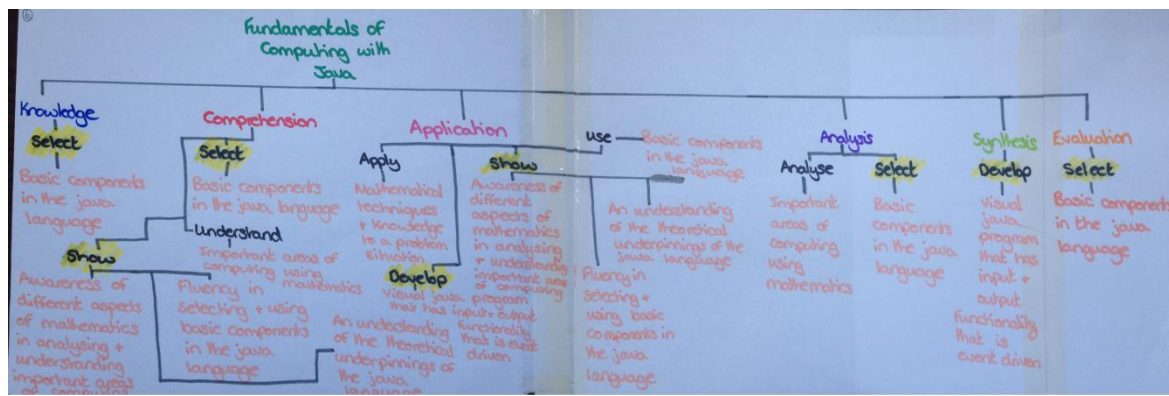 6
Fundamentals of
Computing with
Java
Knowledge
Select
Basic components
in the java
language
Comprehension
Select
Basic components
in the java language
Understand
Important areas of
computing using
mathematics
Show
Awareness of
different aspects
of mathematics
in analysing +
understanding
important areas
of computing
Fluency in
selecting + using
basic components
in the java
language
An understanding
of the theoretical
underpinnings of
the java
language
Application
Apply
Mathematical
techniques
+ knowledge
to a problem
situation
Develop
Visual java program
that has input + output
functionality
that is event
driven
Show
Awareness of
different
aspects of
mathematics
in analysing
+ understanding
important areas
of computing
Fluency in
selecting +
using basic
components in
the java
language
An understanding
of the theoretical
underpinnings of the
java language
use
Basic components
in the java
language
Analysis
Analyse
Important
areas of
computing
using
mathematics
Select
Basic
components
in the java
language
Synthesis
Develop
Visual
java
program
that has
input +
output
functionality
that is
event driven
Evaluation
Select
Basic components
in the java
language